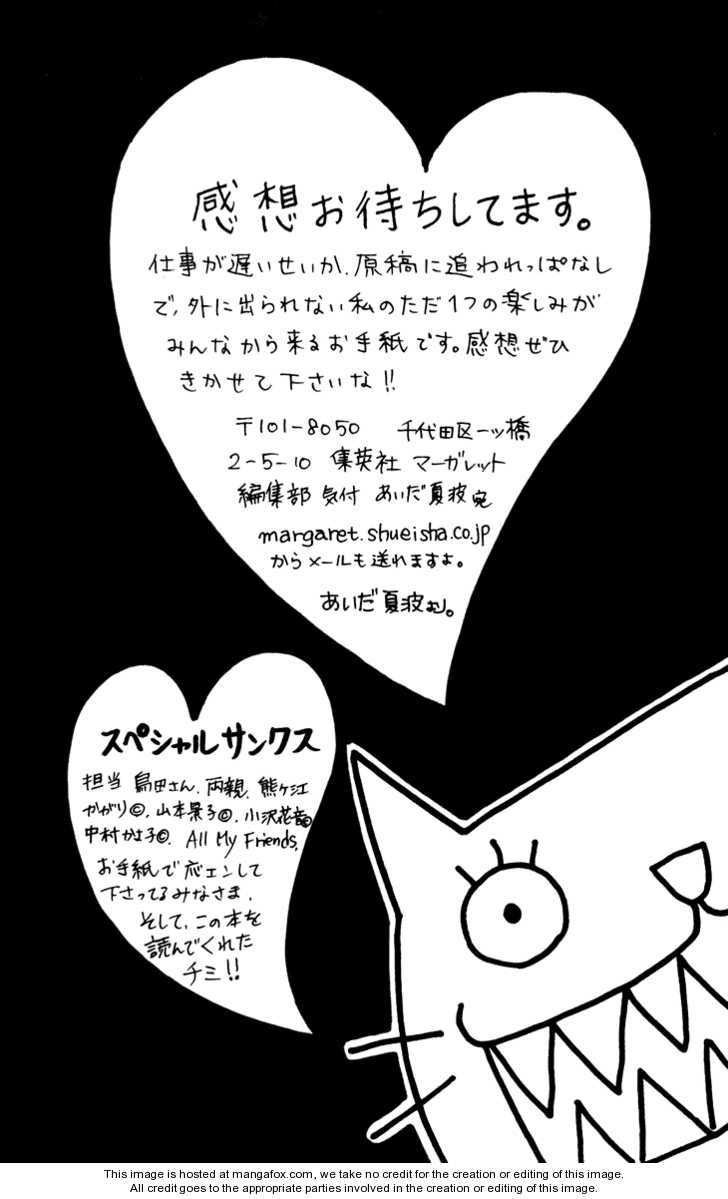 感想お待ちしてます。
仕事が遅いせいか、原稿に追われっぱなし
で、外に出られない私のただ1つの楽しみが
みんなから来るお手紙です。感想ぜひ
きかせて下さいな!!
〒101-8050 千代田区一ツ橋
2-5-10 集英社 マーガレット
編集部 気付 あいだ夏波宛
margaret.shueisha.co.jp
からメールも送れますよ。
あいだ夏波
スペシャルサンクス
担当 島田さん、両親、熊ヶ江
かがり©、山本景子©、小沢花音©
中村かよ子©、All My Friends,
お手紙で応エンして
下さってるみなさま、
そして、この本を
読んでくれた
チミ!!
This image is hosted at mangafox.com, we take no credit for the creation or editing of this image.
All credit goes to the appropriate parties involved in the creation or editing of this image.